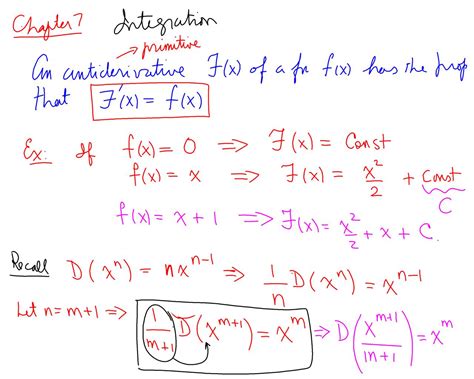 Chapter 7 Integration
→ primitive
An antiderivative F(x) of a fn f(x) has the prop
that F'(x) = f(x)
Ex: If f(x) = 0 ⟹ F(x) = Const
f(x) = x ⟹ F(x) = x²/2 + Const
C
f(x) = x + 1 ⟹ F(x) = x²/2 + x + C.
Recall D(xⁿ) = nxⁿ⁻¹ ⟹ 1/n D(xⁿ) = xⁿ⁻¹
Let n = m+1 ⟹ 1/(m+1) D(xᵐ⁺¹) = xᵐ ⟹ D(xᵐ⁺¹/(m+1)) = xᵐ